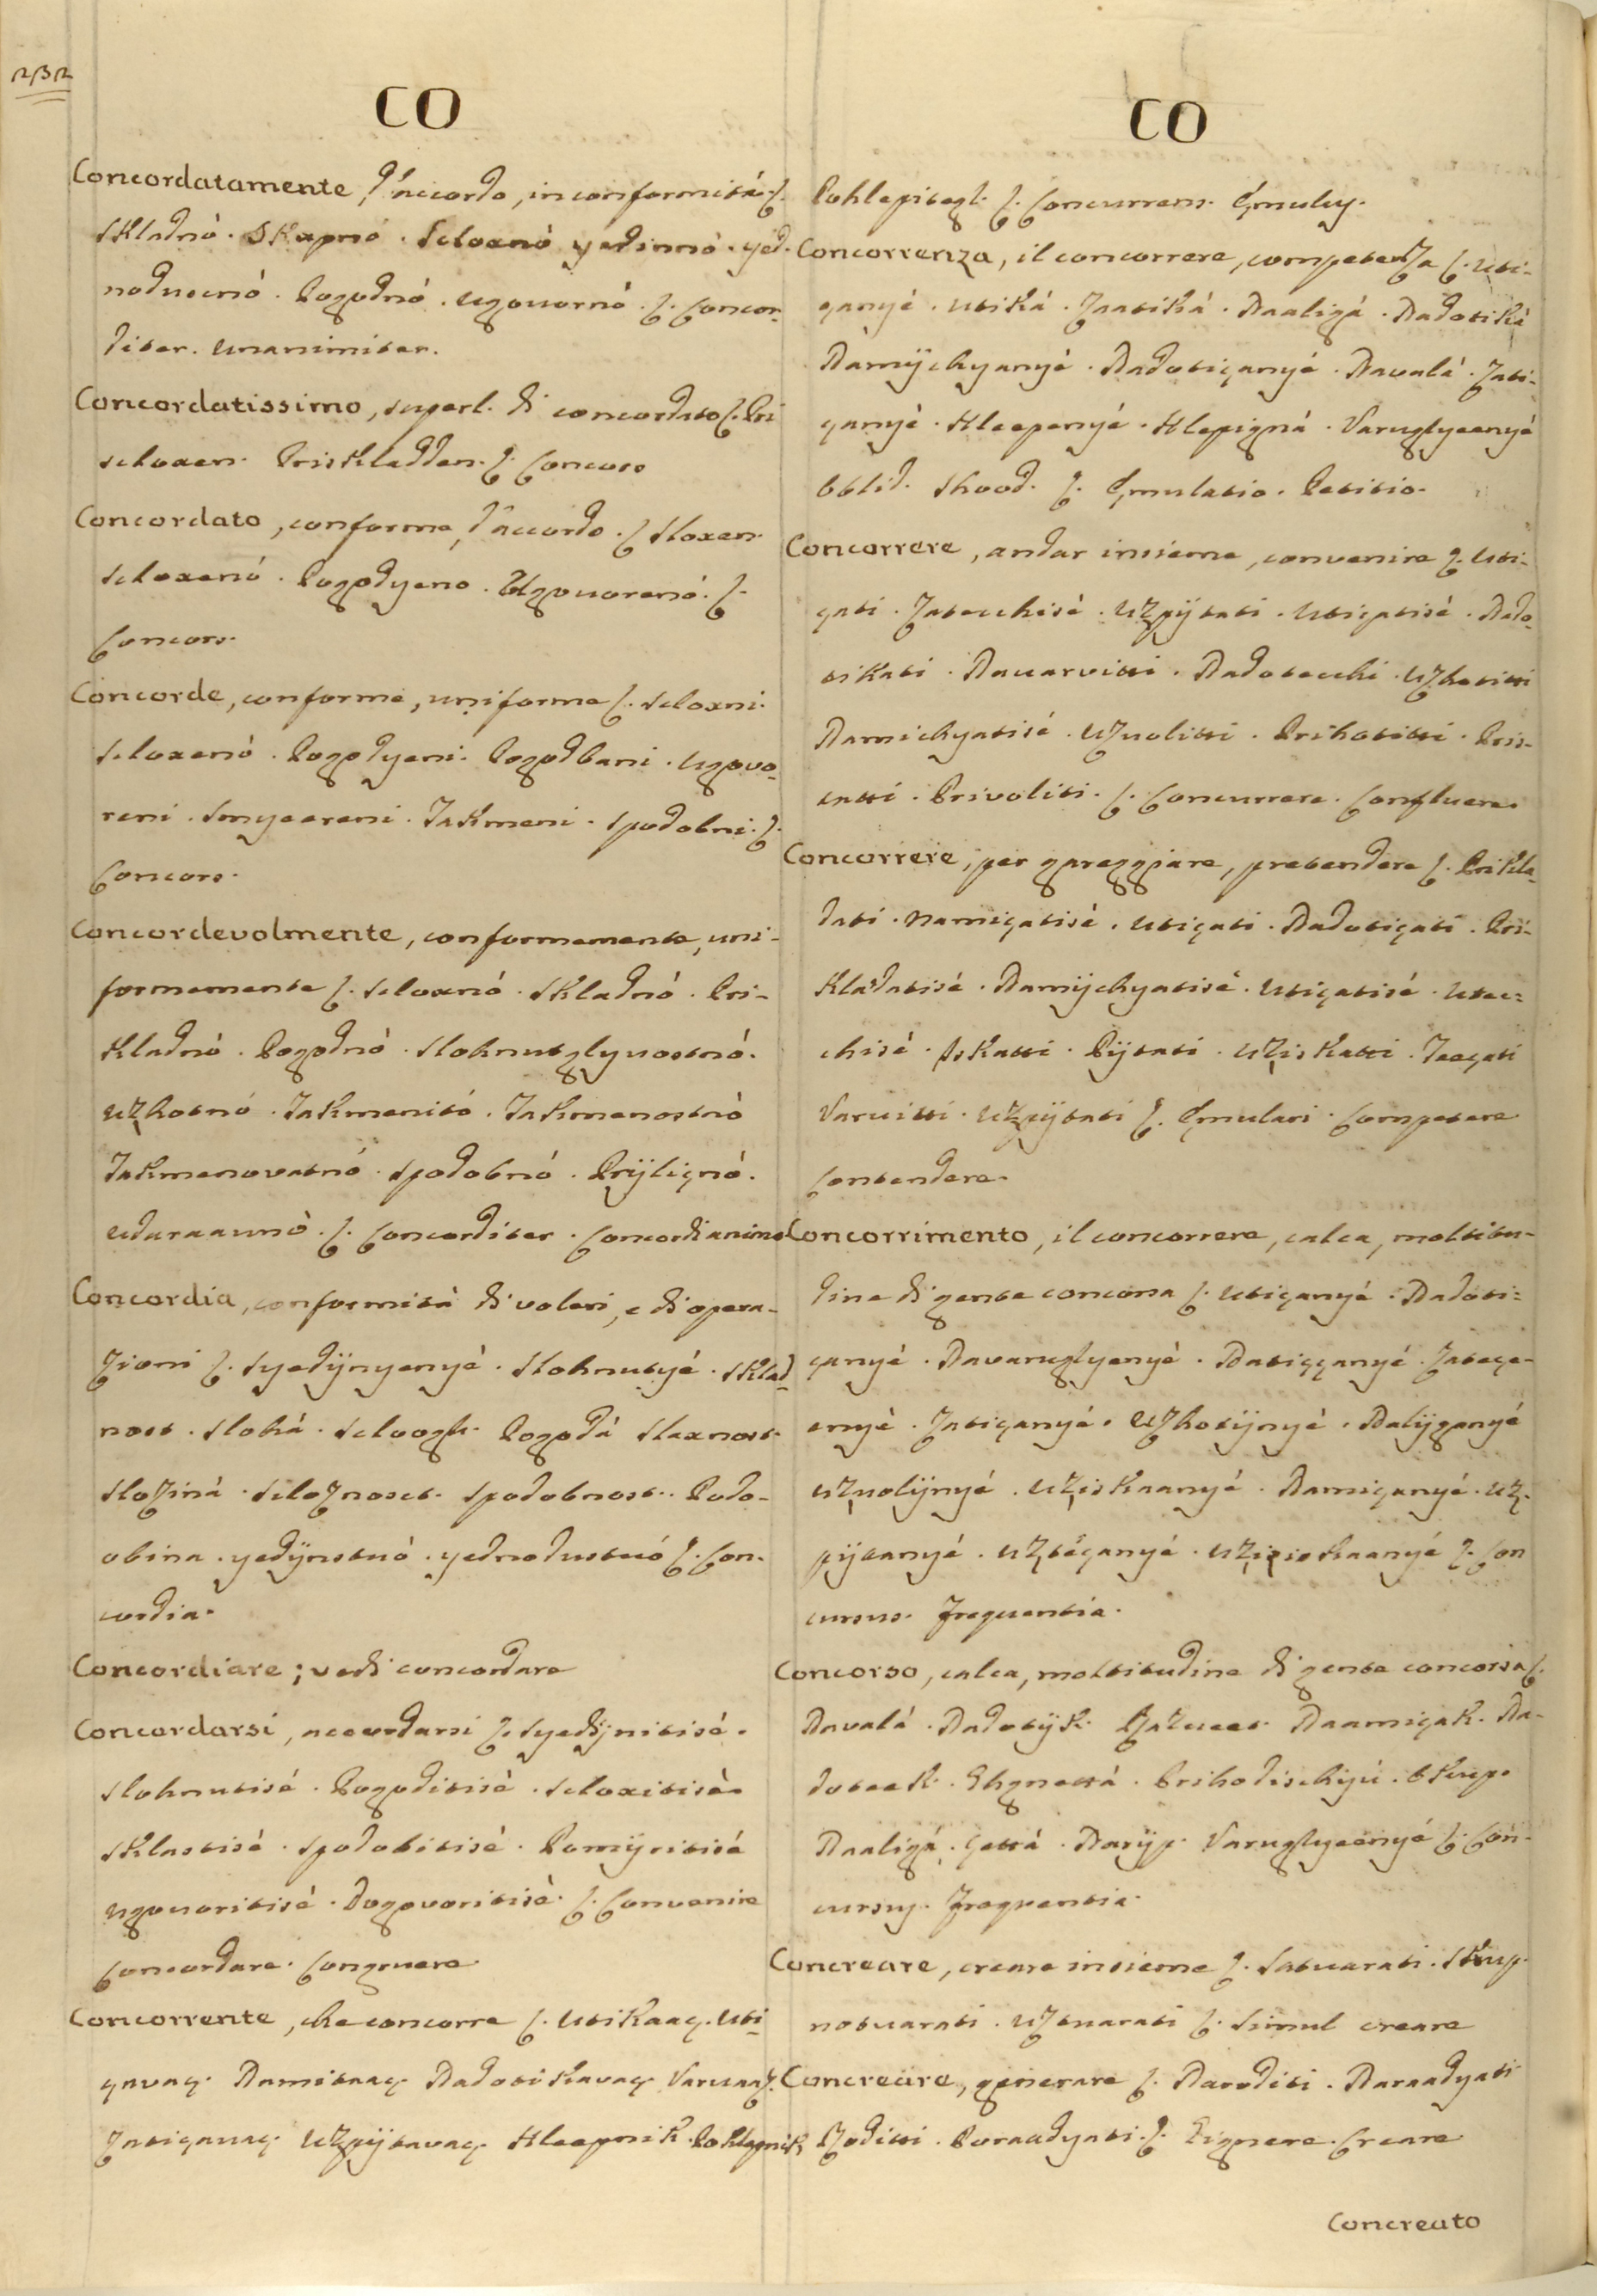 232
CO
Concordatamente, d'accordo, in conformità. ſ.
Skladnò. Skupnó. Scloxnò yedinnò. yed-
noduscnò. Pogodnó. Ugovornò. ſ. Concor-
diter. Unanimiter.
Concordatissimo, superl. di concordato ſ. Pri
scloxen. Priskladden. ſ. Concors
Concordato, conforme, d'accordo. ſ Sloxen.
Scloxenó. Pogodyeno. Ugovorenó. ſ.
Concors.
Concorde, conforme, uniforme ſ. Scloxni.
Scloxenó. Pogodyeni. Pogodbani. Ugovo-
reni. Smyeereni. Takmeni. Spodobni. ſ.
Concors.
Concordevolmente, conformemente, uni-
formemente ſ. Scloxnó. Skladnó. Pri-
kladnó. Pogodnó. Slohnutglyvostnó.
Uzhotnó. Takmenitó. Takmenostnò
Takmenovatnó. Spodobnó. Prijliçnó.
ſ. Concorditer. Concordi animo
Concordia, conformità di voleri, e di opera-
zioni ſ. Syedijnyenyè. Slohnutyé. Sklad-
nost. Slohá. Scloogh. Pogodá Slaxnost.
Slozinà. Scloznost. Spodobnost. Podo-
obina. yedijnstuò. yednodustuó ſ. Con-
cordia.
Concordiare; vedi concordare
Concordarsi, accordarsi ſ. Syedijnitisè.
Slohnutisé. Pogoditisè. Scloxitisè.
Sklastisè. Spodobitisè. Pomijritisé
Ugovoritisè. Dogovoritisè. ſ. Convenire
Concordare. Congruere.
Concorrente, che concorre ſ. Utikaaç. Uti-
çavaç. Namitaaç Nadotikavaç Varvaaç.
Zatiçavaç Uzpijtavaç Hleepnik. Pohlepnik
Pohlepitegl. ſ. Concurrens. Æmulus.
Concorrenza, il concorrere, competenza ſ. Uti-
çanyé. Utiká. Zaatiká. Naaligá. Nadotikà
Namijchyanyé. Nadotiçanyé. Navalá. Zati-
çanyè. Hleepenyé. Hlepigná. Varuglyeenyé
Oblid. Shood. ſ. Æmulatio. Petitio.
Concorrere, andar insieme, convenire ſ. Uti-
çati. Zatecchisè. Uzpijtati. Utiçatisè. Nado-
tikati. Navarvitti. Nadotecchi. Uzhotitti
Namichyatisé. Uzvolitti. Prihotitti. Pris-
tatti. Privoliti. ſ. Concurrere. Confluere.
Concorrere, per gareggiare, pretendere ſ. Prikla-
dati. Namiçatisè. Utiçati. Nadotiçati. Pri-
kladatisé. Namijchyatisé. Utiçatisé. Utec-
chisè. Iskatti. Pijtati. Uziskatti. Teeçati
Varvitti. Uzpijtati ſ. Æmulari. Competere
Contendere.
Concorrimento, il concorrere, calca, moltitu-
dine di gente concorsa ſ. Utiçanyé. Nadoti-
çanyé. Navaruglyenyè. Natiççanyé. Zateçe-
enyè. Zatiçanyé. Uzhotijnyè. Nalijganyé
Uzvolijnyé. Uziskaanyé. Namiçanyé. Uz-
pijtanyé. Uzteçanyé. ſ. Con
cursus. Frequentia.
Concorso, calca, moltitudine di gente concorsa ſ.
Navalá. Nadotijk. Naamiçak. Na-
doteek. Ghgnettá. Prihodischyú. Skup.
Naaligá. Çettá. Narijp. Varuglyeenyé ſ. Con-
cursus. Frequentia.
Concreare, creare insieme ſ. Satvarati. Skup-
notvarati. Uztvarati ſ. Simul creare
Concreare, generare ſ. Naroditi. Naraadyati
Roditti. Poraadyati. ſ. Gignere. Creare
Concreato